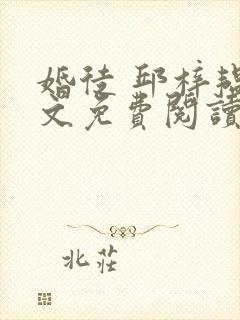 婚徒 邱梓韫
文免費閱讀
北莊